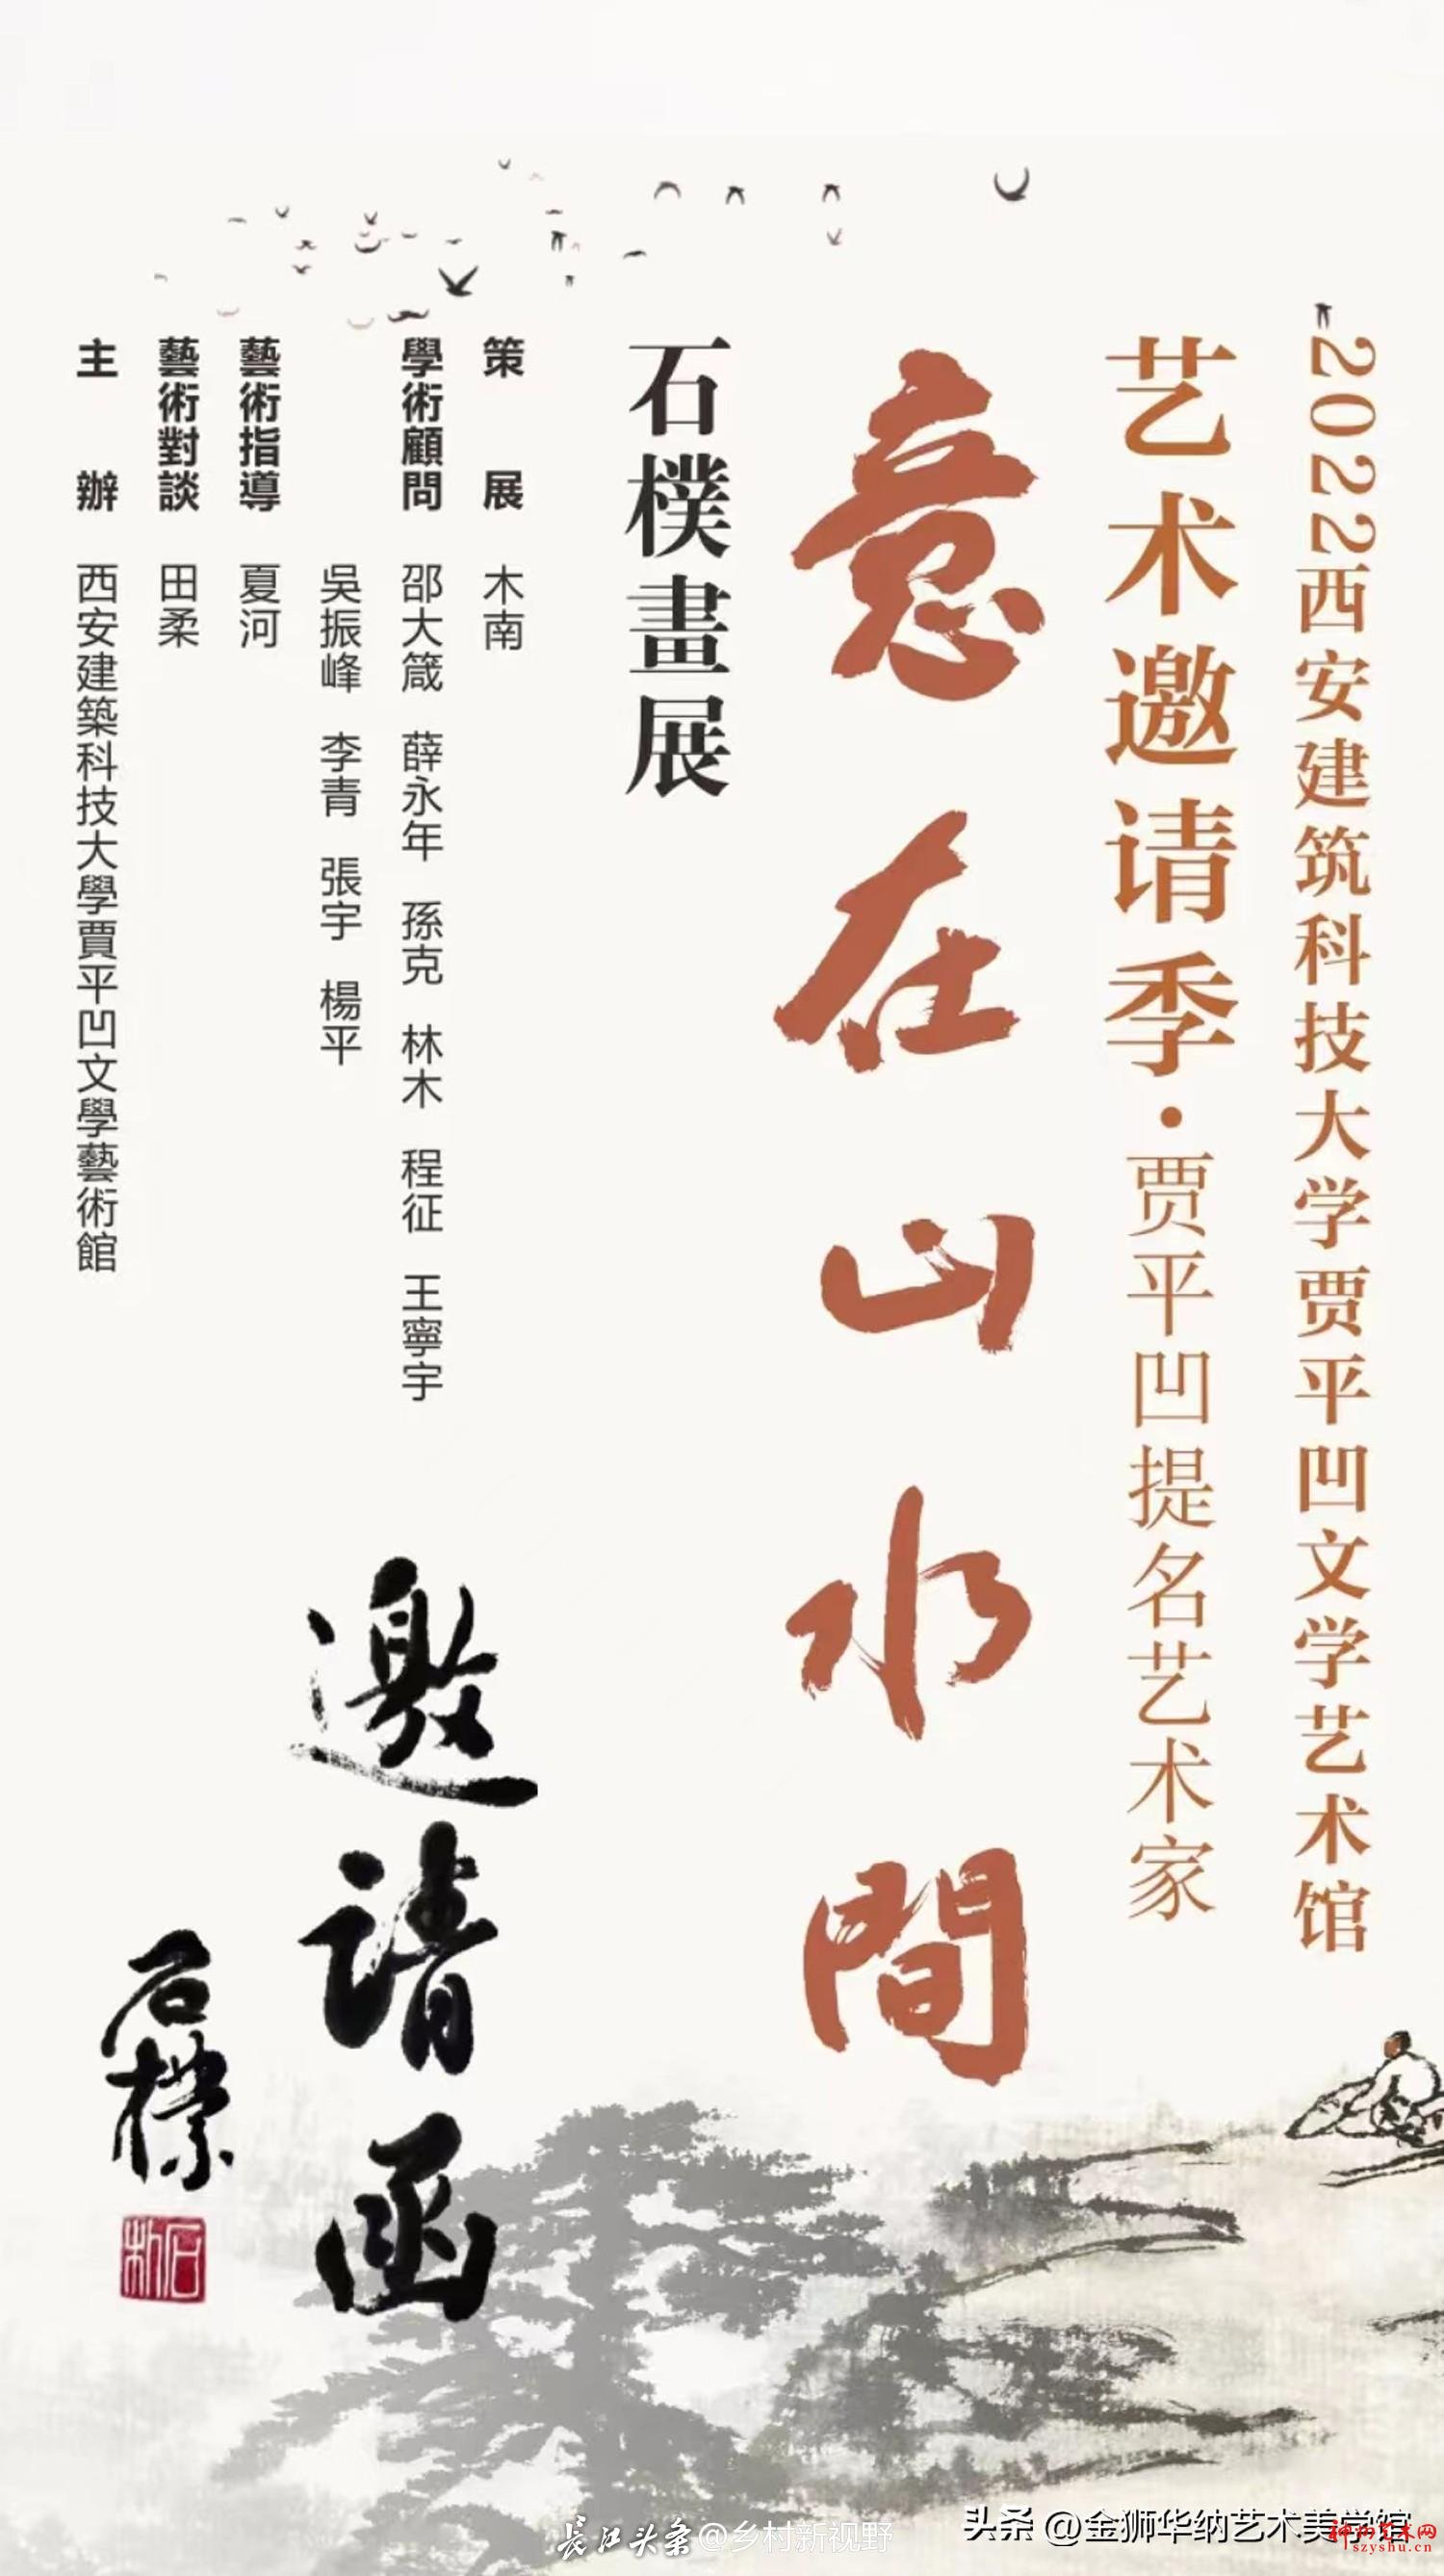 2022西安建筑科技大学贾平凹文学艺术馆
艺术邀请季·贾平凹提名艺术家
意在山水間
石樸畫展
策展 木南
學術顧問 邵大箴 薛永年 孫克 林木 程征 王寧宇
吳振峰 李青 張宇 楊平
藝術指導 夏河
藝術對談 田柔
主辦 西安建築科技大學賈平凹文學藝術館
邀請函
石樸
长江头条@乡村新视野
头条 @金狮华纳艺术美学馆
神州艺术网
szyshu.cn